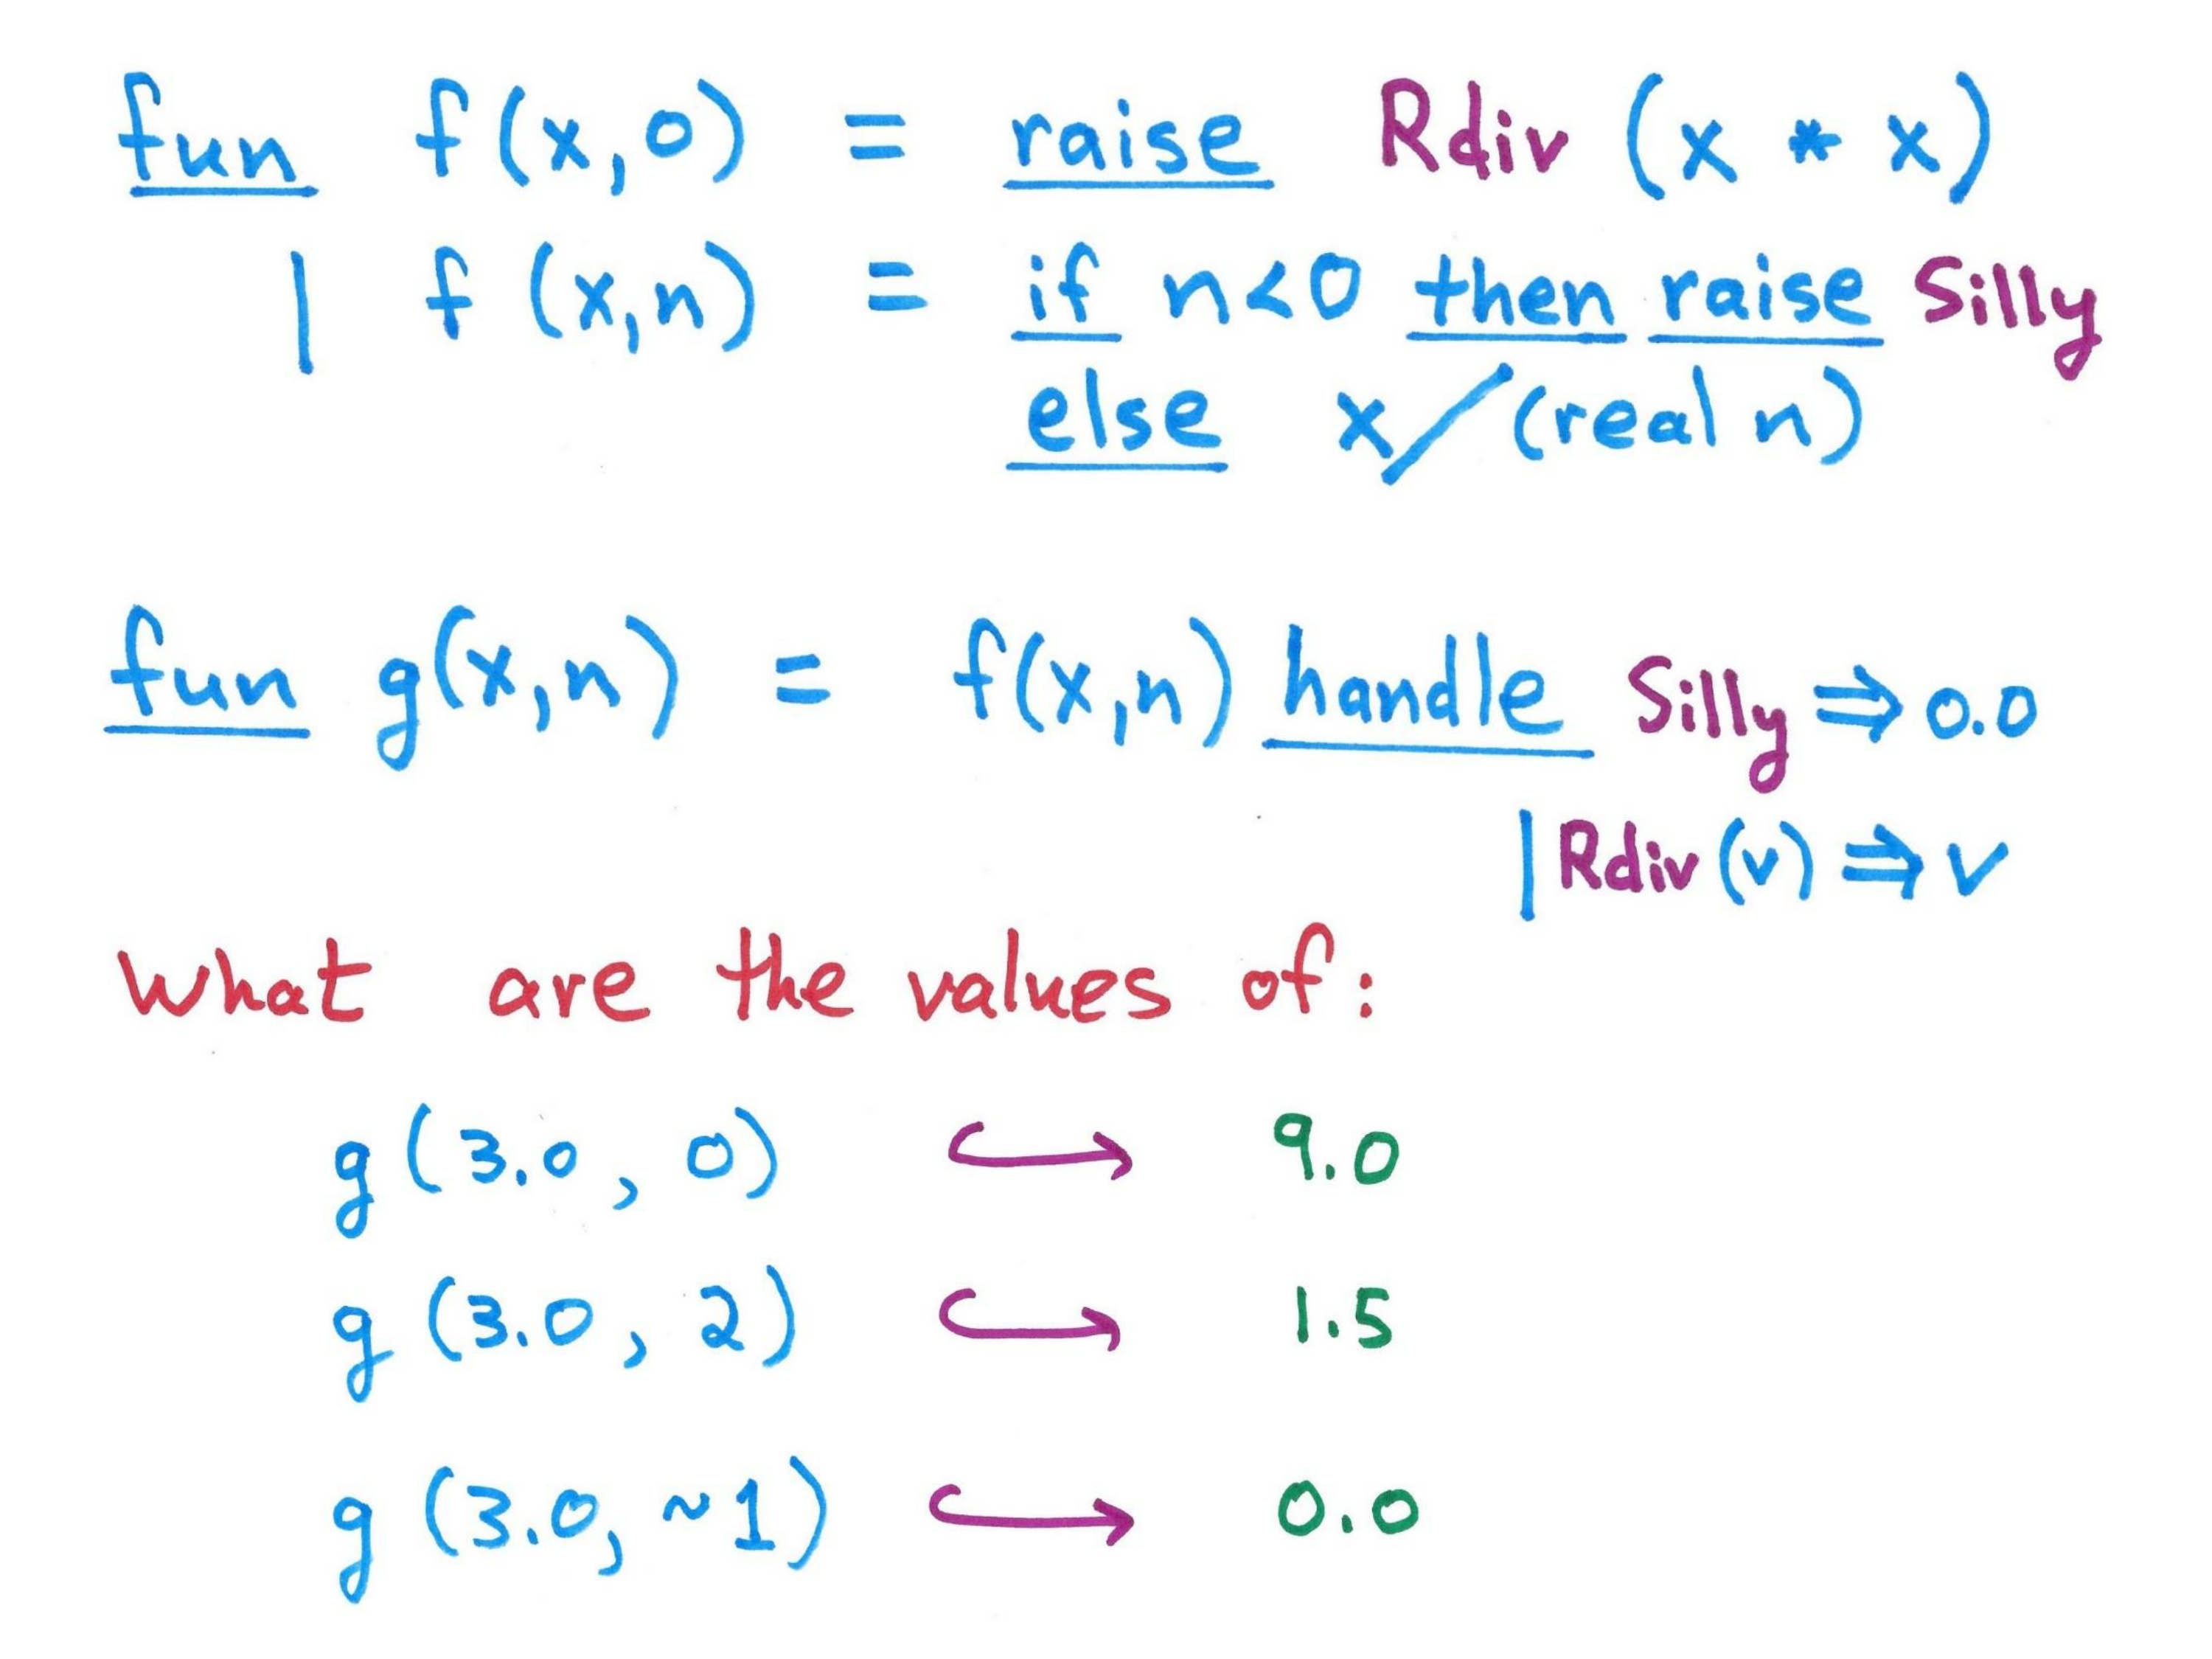 fun f(x,0) = raise Rdiv (x * x)
| f (x,n) = if n<0 then raise Silly
else x/(real n)
fun g(x,n) = f(x,n) handle Silly ⇒ 0.0
| Rdiv (v) ⇒ v
What are the values of:
g (3.0, 0) ↪ 9.0
g (3.0, 2) ↪ 1.5
g (3.0, ~1) ↪ 0.0